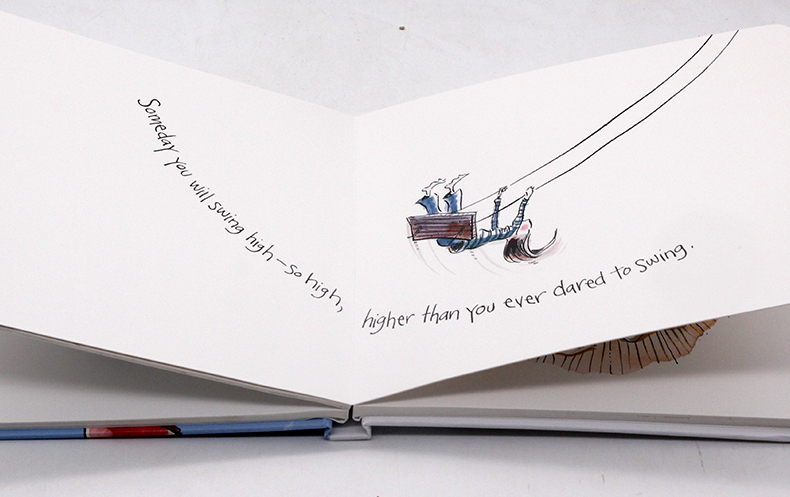 Someday you will swing high—so high,
higher than you ever dared to swing.